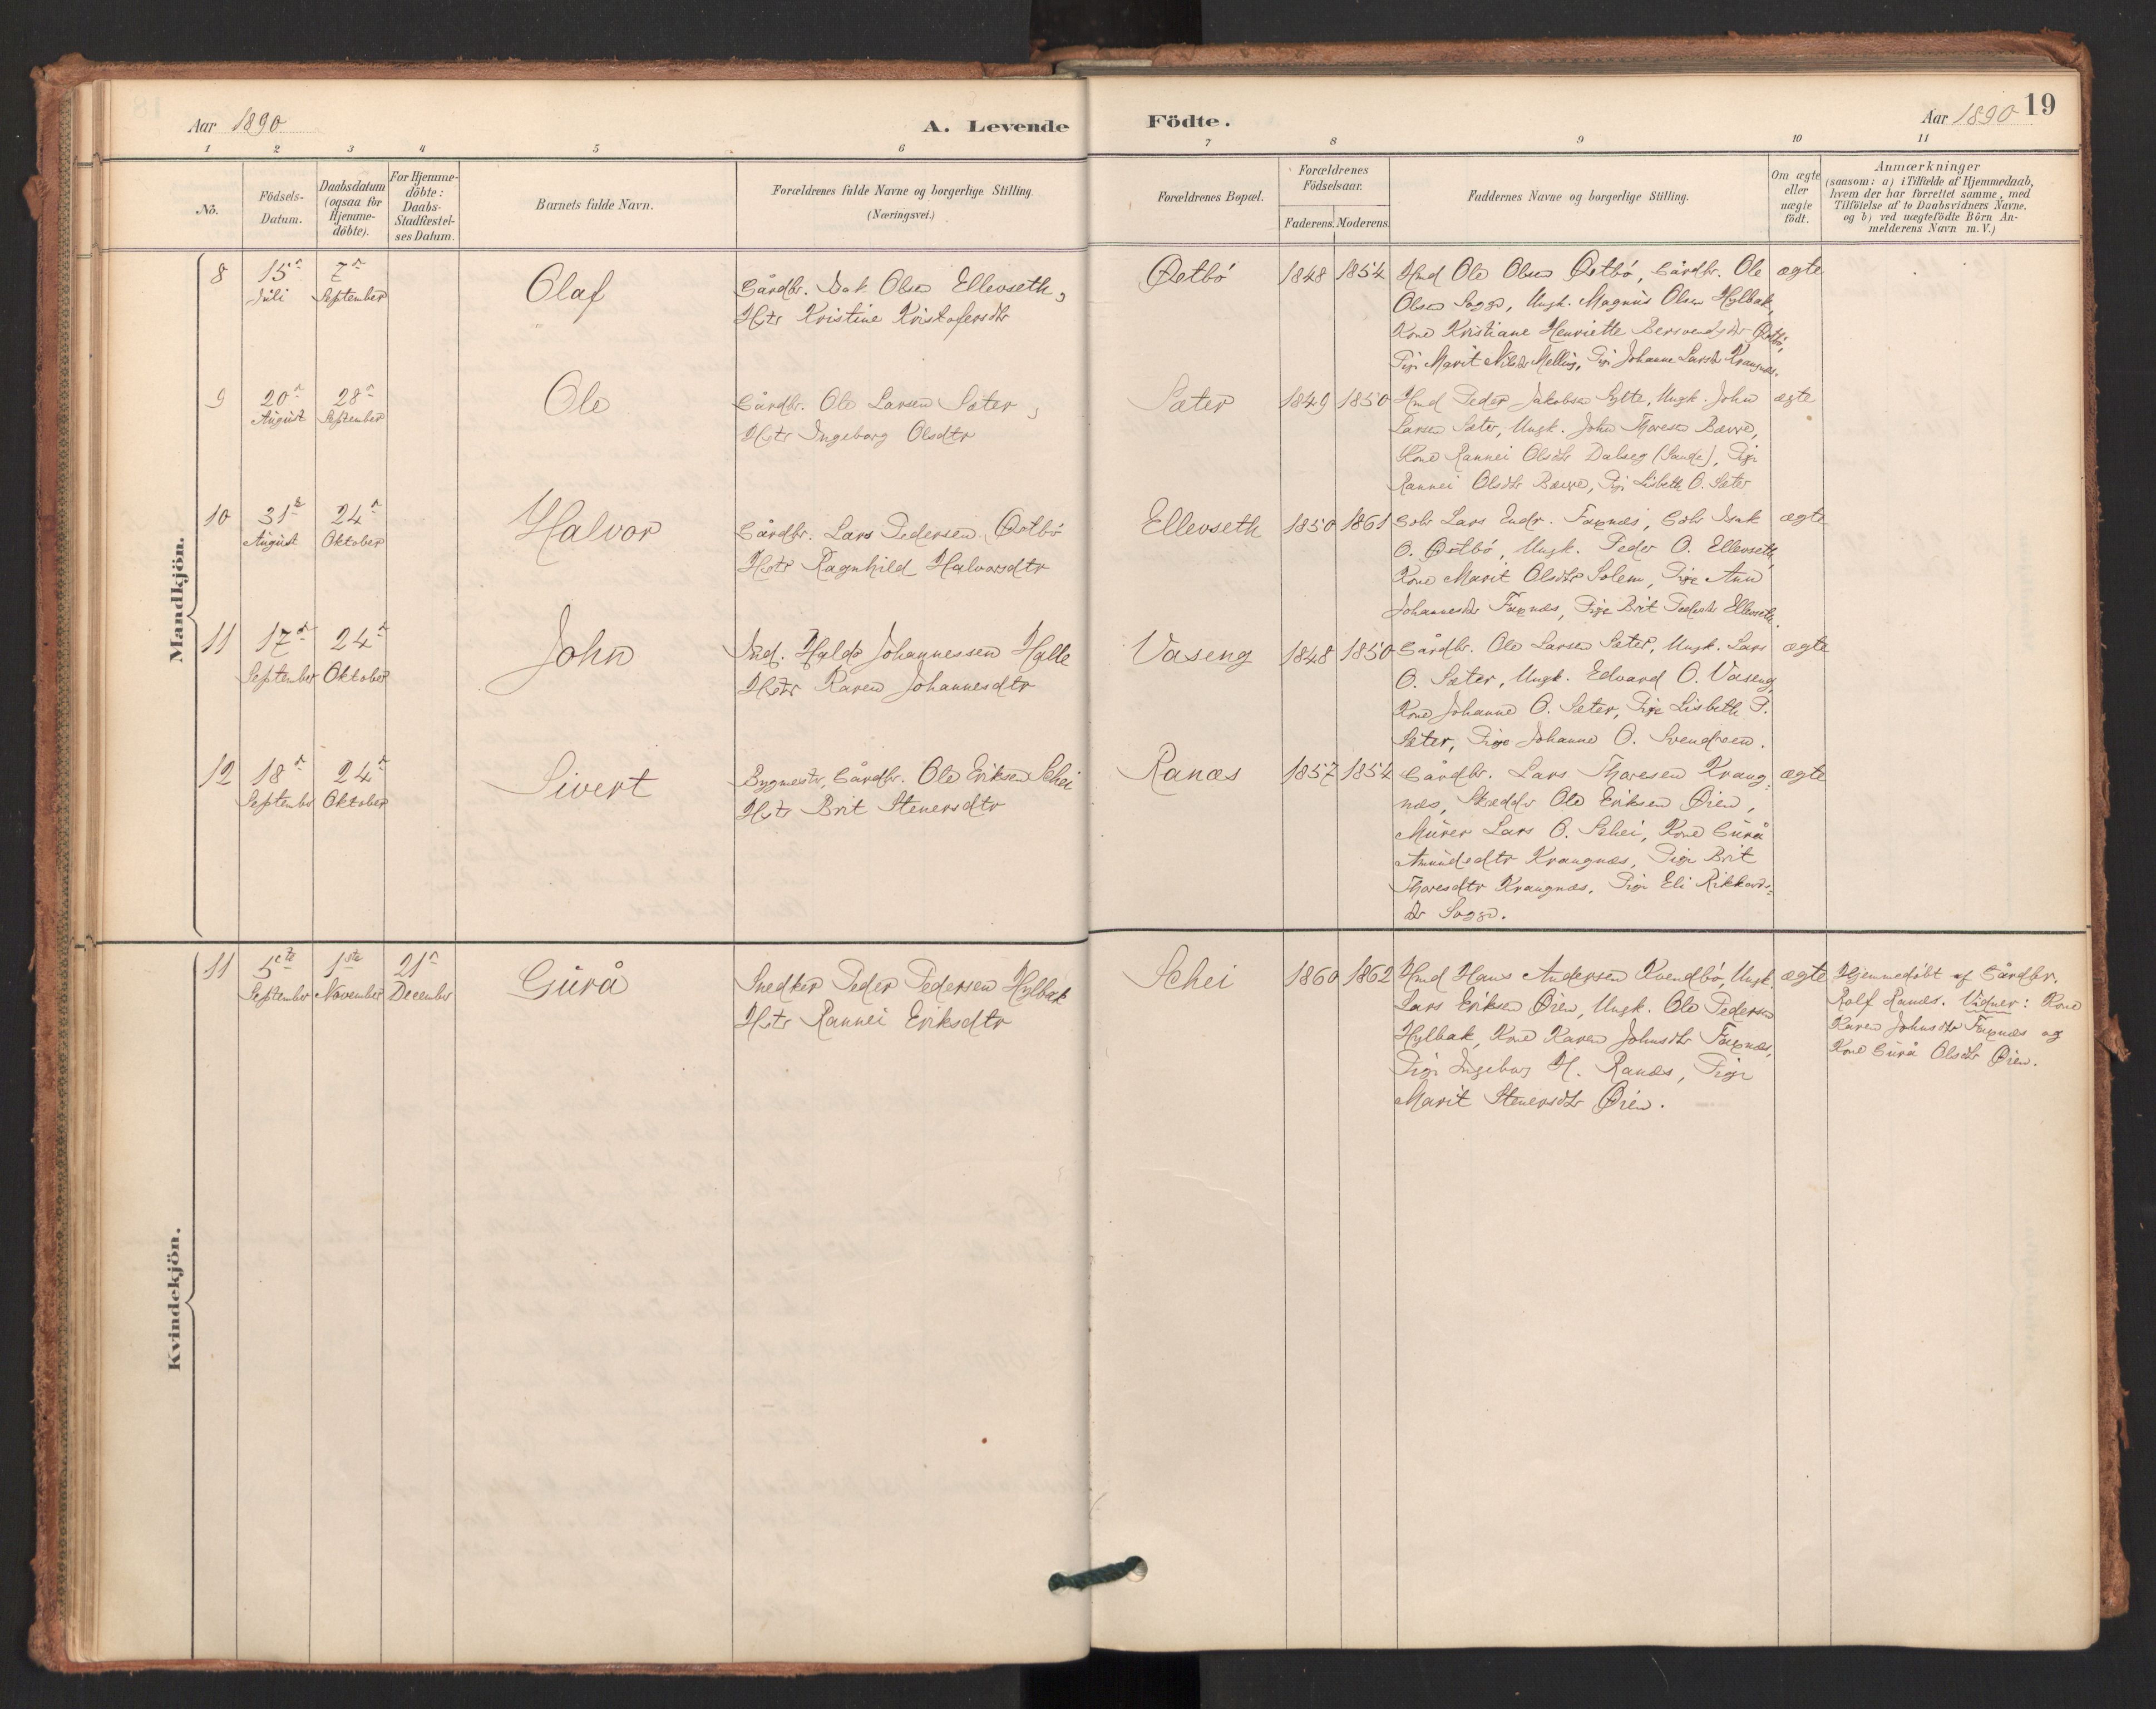 Aar 1890
A. Levende
Födte.
Aar 1890
19
1 2 3 4 5 6 7 8 9 10 11
No.
Födsels-
Datum.
Daabsdatum
(ogsaa for
Hjemme-
döbte).
For Hjemme-
döbte:
Daabs-
Stadfæstel-
ses Datum.
Barnets fulde Navn.
Forældrenes fulde Navne og borgerlige Stilling.
(Næringsvei.)
Forældrenes Bopæl.
Forældrenes
Födselsaar.
Faderens. Moderens.
Faddernes Navne og borgerlige Stilling.
Om ægte
eller
uægte
födt.
Anmærkninger
(saasom: a) i Tilfælde af Hjemmedaab,
hvem der har forrettet samme, med
Tilföielse af to Daabsvidners Navne,
og b) ved uægtefödte Börn An-
melderens Navn m. V.)
Mandkjön.
8
15de
Juli
7de
September
Olaf
Gårdbr. Isak Olsen Ellevseth,
Hstr Kristine Kristofersdtr
Østbö
1848 1854
Hmd Ole Olsen Østbö, Gårdbr. Ole
Olsen Sogge, Ungk. Magnus Olsen Hylbak,
Kone Kristiane Henriette Bersvendsdtr Østbö,
Pige Marit Nilsdtr Melling, Pige Johanne Larsdtr Krangnæs.
ægte
9
20de
August
28de
September
Ole
Gårdbr. Ole Larsen Sæter,
Hstr Ingeborg Olsdtr
Sæter
1849 1850
Hmd Peder Jakobsen Sylte, Ungk. John
Larsen Sæter, Ungk. John Thoresen Bævre,
Kone Rannei Olsdtr Dalseg (Sande), Pige
Rannei Olsdtr Bævre, Pige Lisbeth O. Sæter
ægte
10
31te
August
24de
Oktober
Halvor
Gårdbr. Lars Pedersen Østbö
Hstr Ragnhild Halvorsdtr
Ellevseth
1850 1861
Gbr Lars Endr. Faxnæs, Gbr Isak
O. Østbö, Ungk. Peder O. Ellevseth,
Kone Marit Olsdtr Solem, Pige Ane
Johannesdtr Faxnæs, Pige Brit Pedersdtr Ellevseth.
ægte
11
17de
September
24de
Oktober
John
Ind. Haldo Johannessen Halle
Hstr Karen Johannesdtr
Vaseng
1848 1850
Gårdbr. Ole Larsen Sæter, Ungk. Lars
O. Sæter, Ungk. Edvard O. Vaseng,
Kone Johanne O. Sæter, Pige Lisbeth P.
Sæter, Pige Johanne O. Svendseen.
ægte
12
18de
September
24de
Oktober
Sivert
Bygmester, Gårdbr. Ole Eriksen Schei
Hstr Brit Stenersdtr
Ranæs
1857 1854
Gårdbr. Lars Thoresen Krang-
næs, Skrædder Ole Eriksen Øien,
Murer Lars O. Schei, Kone Gurå
Amundsdtr Krangnæs, Pige Brit
Thoresdtr Krangnæs, Pige Eli Rikkards-
dtr Sogge.
ægte
Kvindekjön.
11
5te
September
1ste
November
21de
December
Gurå
Snedker Peder Pedersen Hylbak
Hstr Rannei Eriksdtr
Schei
1860 1862
Hmd Hans Andersen Kvendbö, Ungk.
Lars Eriksen Øien, Ungk. Ole Pedersen
Hylbak, Kone Karen Johnsdtr Faxnæs,
Pige Ingeborg H. Ranæs, Pige
Marit Stenersdtr Øien.
ægte
Hjemmedöbt af Gårdbr.
Rolf Ranæs. Vidner: Kone
Karen Johnsdtr Faxnæs og
Kone Gurå Olsdtr Øien.